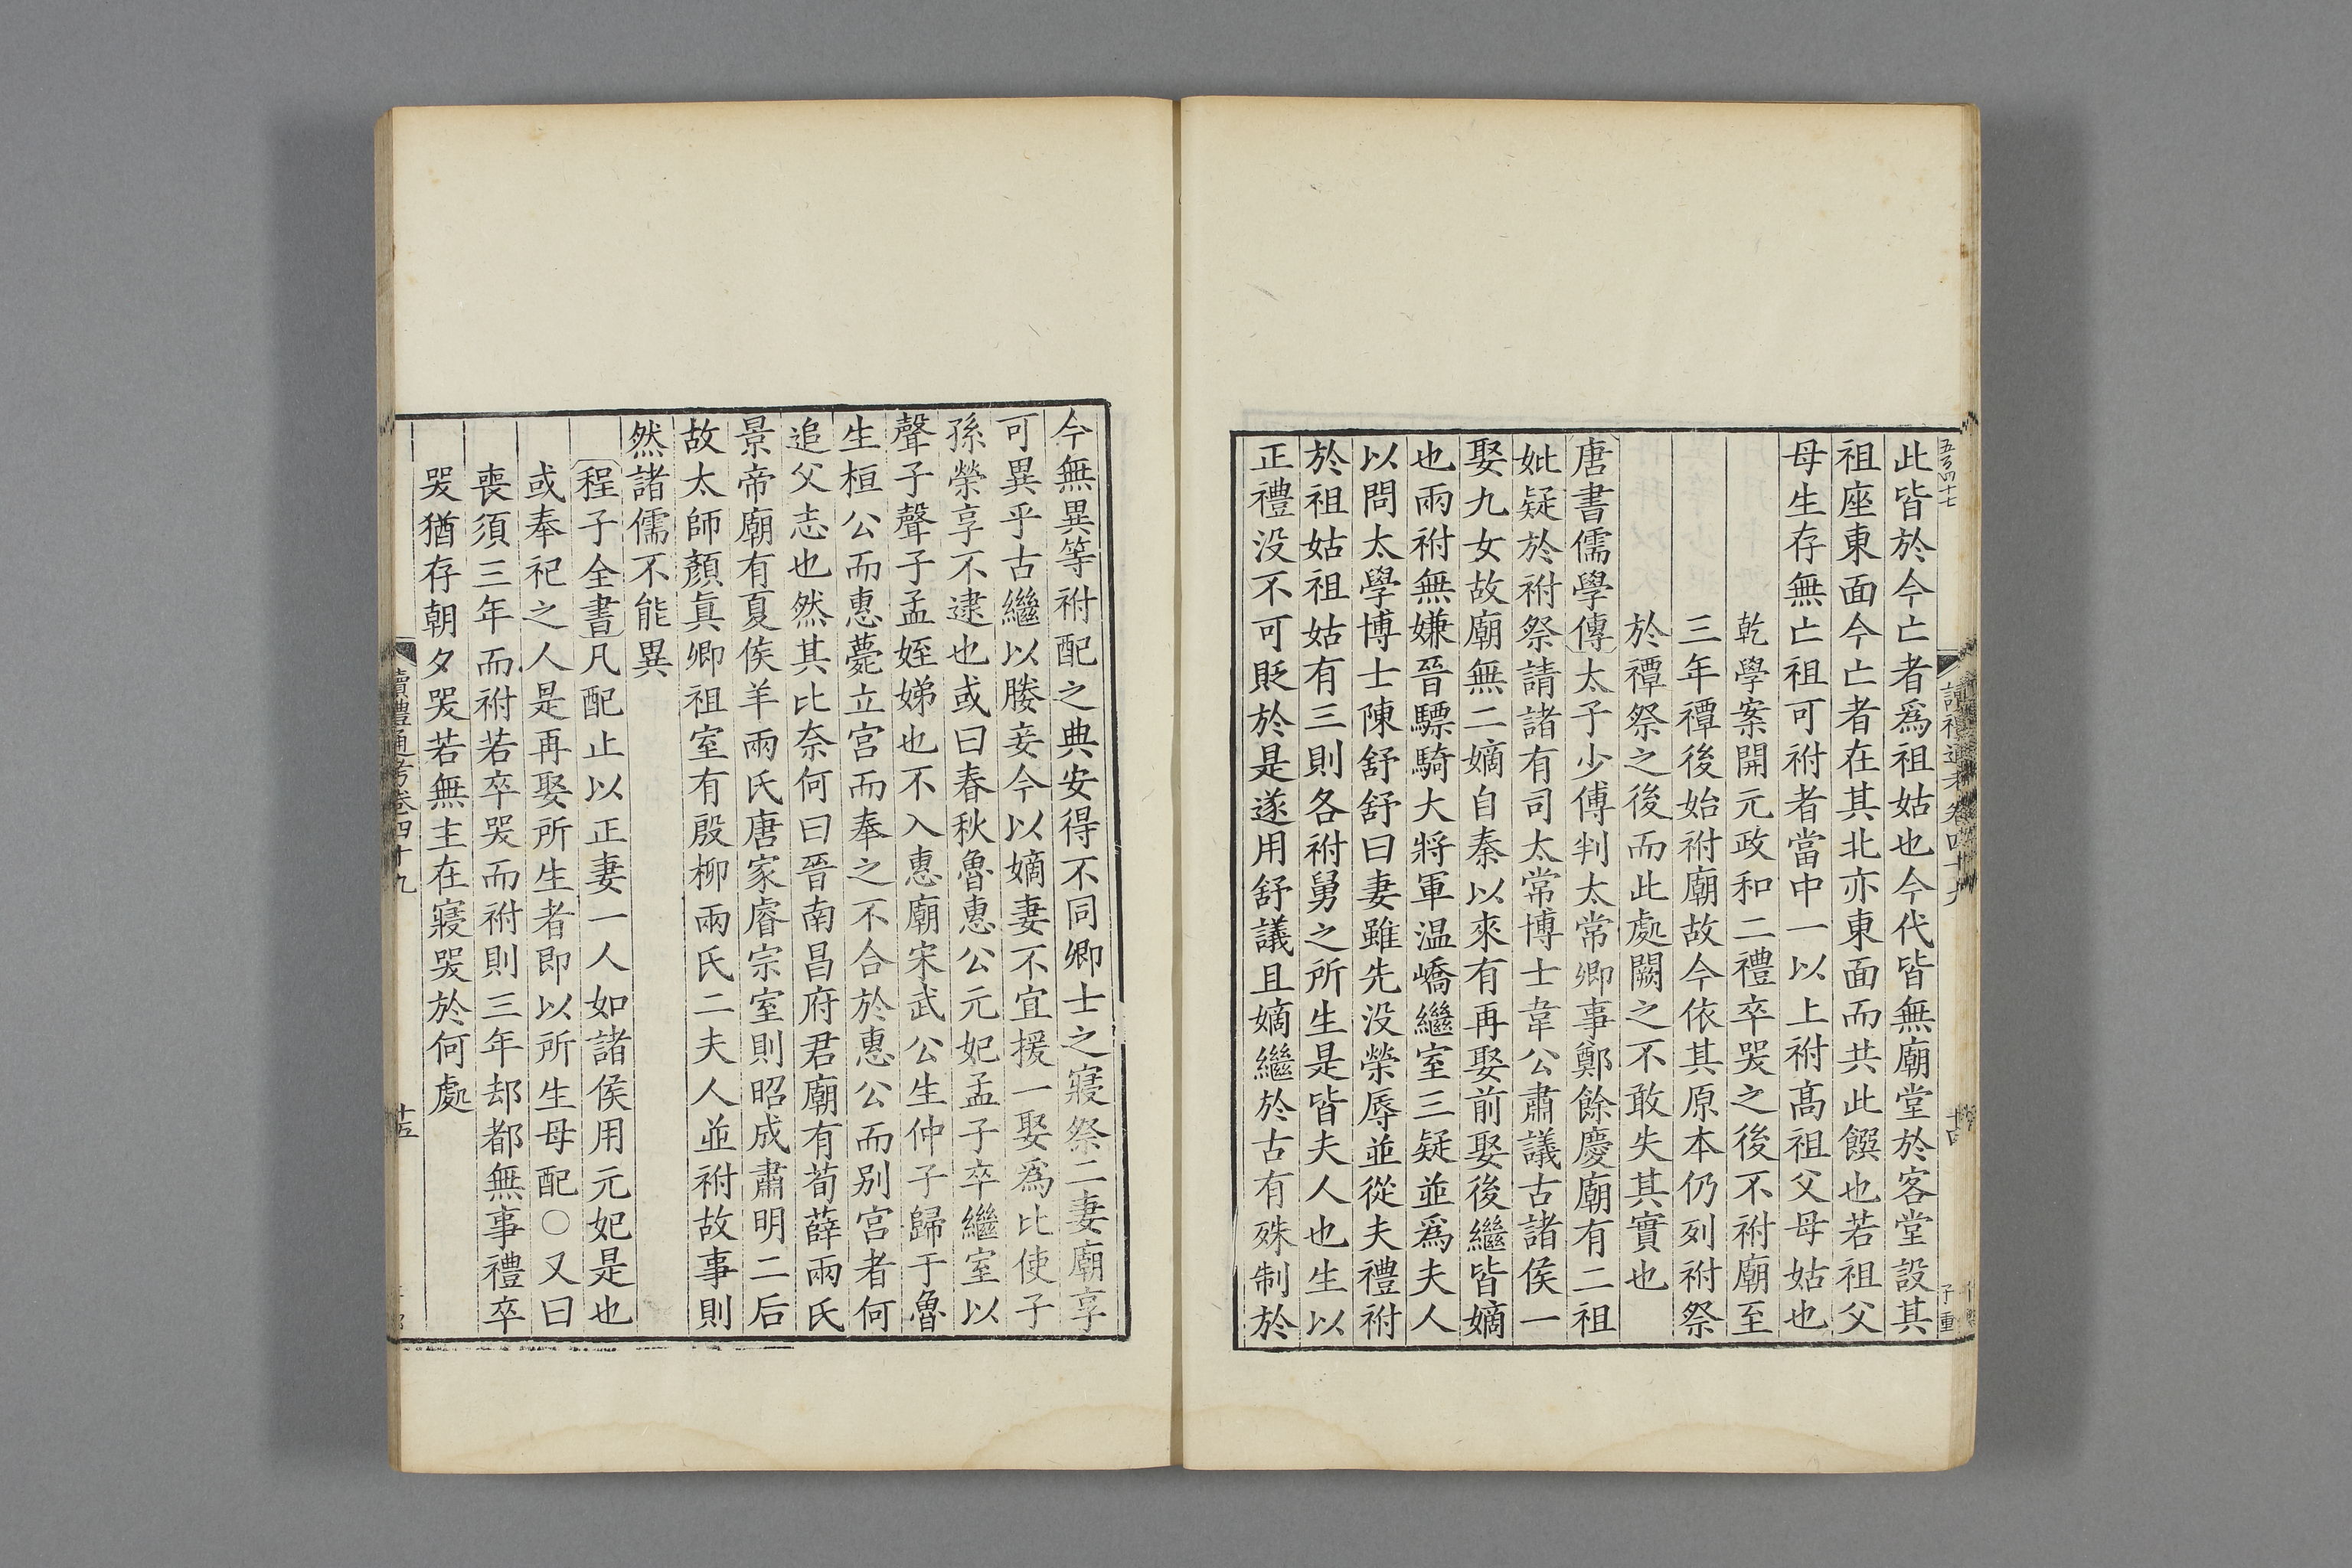 五百四十七
讀禮通考卷四十九
十四
子重
此皆於今亡者爲祖姑也今代皆無廟堂於客堂設其
祖座東面今亡者在其北亦東面而共此饌也若祖父
母生存無亡祖可祔者當中一以上祔高祖父母姑也
乾學案開元政和二禮卒哭之後不祔廟至
三年禫後始祔廟故今依其原本仍列祔祭
於禫祭之後而此處闕之不敢失其實也
唐書儒學傳太子少傅判太常卿事鄭餘慶廟有二祖
妣疑於祔祭請諸有司太常博士韋公肅議古諸侯一
娶九女故廟無二嫡自秦以來有再娶前娶後繼皆嫡
也兩祔無嫌晉驃騎大將軍温嶠繼室三疑並爲夫人
以問太學博士陳舒舒曰妻雖先没榮辱並從夫禮祔
於祖姑祖姑有三則各祔舅之所生是皆夫人也生以
正禮没不可貶於是遂用舒議且嫡繼於古有殊制於
今無異等祔配之典安得不同卿士之寢祭二妻廟享
可異乎古繼以媵妾今以嫡妻不宜援一娶爲比使子
孫榮享不逮也或曰春秋魯惠公元妃孟子卒繼室以
聲子聲子孟姪娣也不入惠廟宋武公生仲子歸于魯
生桓公而惠薨立宮而奉之不合於惠公而別宮者何
追父志也然其比奈何曰晉南昌府君廟有荀薛兩氏
景帝廟有夏侯羊兩氏唐家睿宗室則昭成肅明二后
故太師顏眞卿祖室有殷柳兩氏二夫人並祔故事則
然諸儒不能異
程子全書凡配止以正妻一人如諸侯用元妃是也
或奉祀之人是再娶所生者即以所生母配○又曰
喪須三年而祔若卒哭而祔則三年却都無事禮卒
哭猶存朝夕哭若無主在寢哭於何處
讀禮通考卷四十九
十五